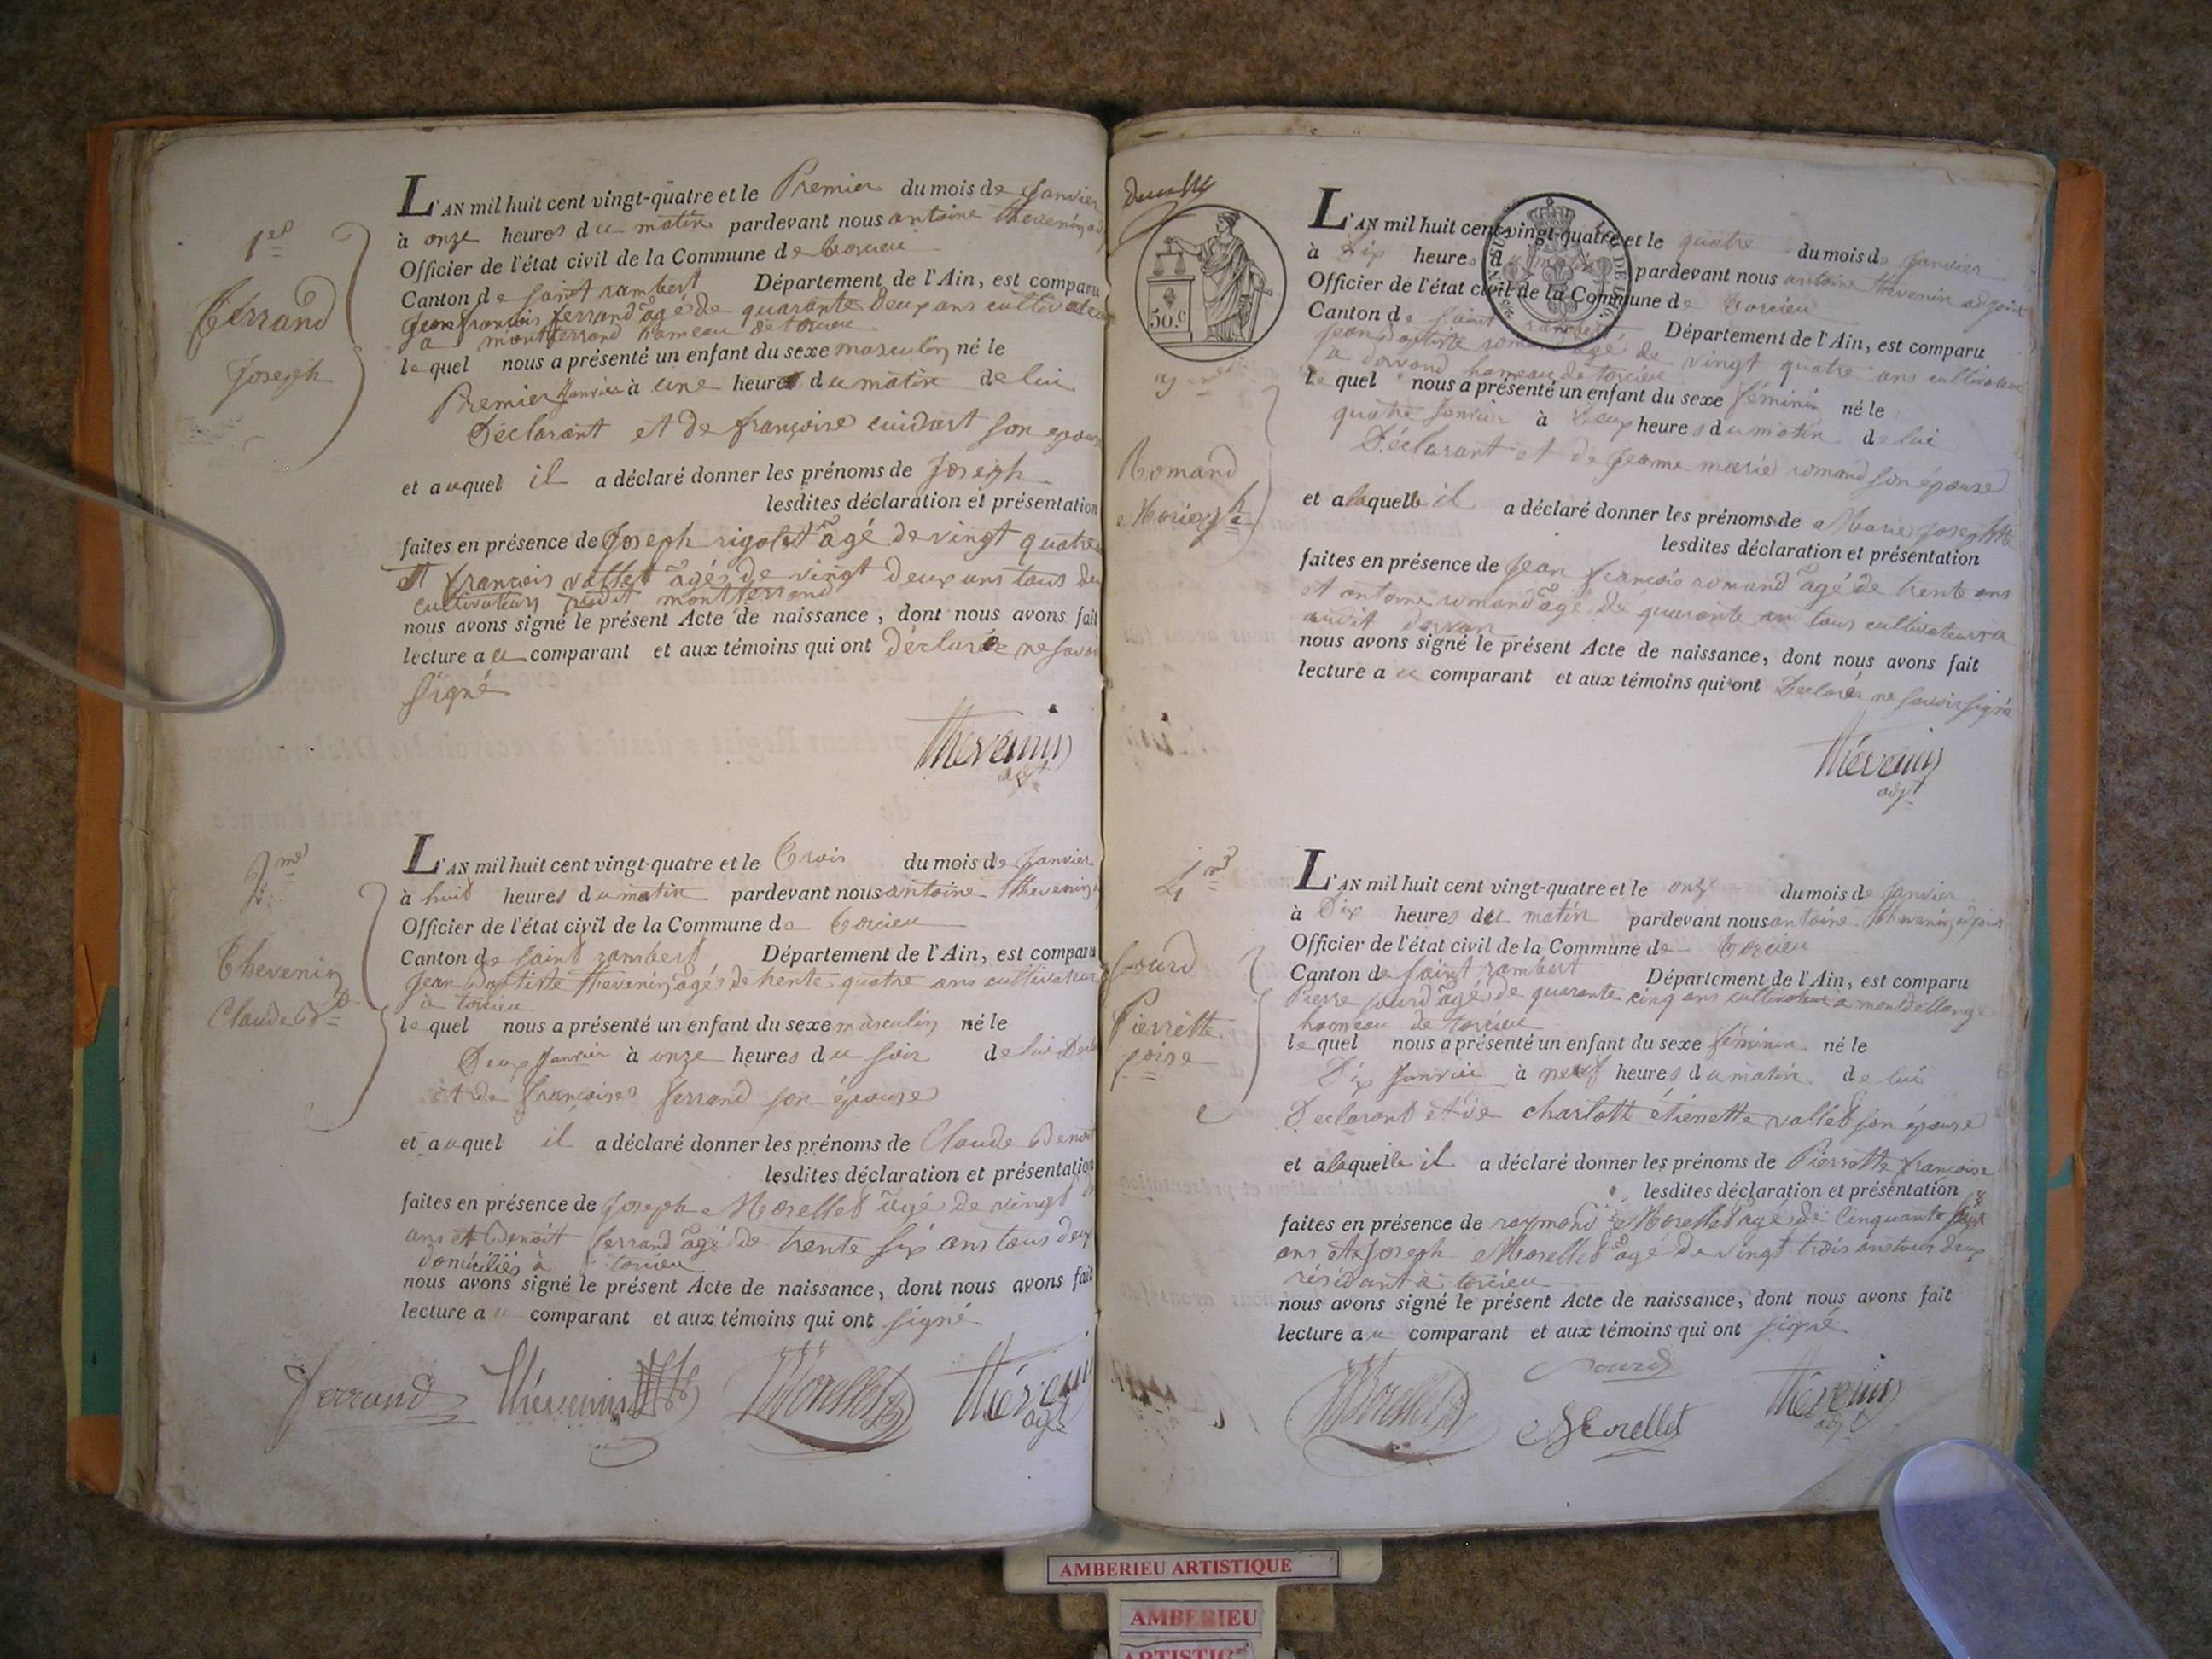 1er
Ferrand
Joseph
L'AN mil huit cent vingt-quatre et le Premier du mois de Janvier
à onze heures du matin pardevant nous antoine thevenin adj
Officier de l'état civil de la Commune de torcieu
Canton de saint rambert Département de l'Ain, est comparu
Jean françois ferrand agé de quarante deux ans cultivateur
a montferrand hameau de torcieu
lequel nous a présenté un enfant du sexe masculin né le
Premier Janvier à une heure du matin de lui
Déclarant et de françoise cuidart son epouse
et auquel il a déclaré donner les prénoms de Joseph
lesdites déclaration et présentation
faites en présence de Joseph rigolet agé de vingt quatre
et françois vallet agés de vingt deux ans tous deux
cultivateurs audit montferrand
nous avons signé le présent Acte de naissance, dont nous avons fait
lecture au comparant et aux témoins qui ont déclaré ne savoir
signé
thevenin
adjt
2me
Thevenin
Claude Bt
L'AN mil huit cent vingt-quatre et le trois du mois de Janvier
à huit heures du matin pardevant nous antoine thevenin
Officier de l'état civil de la Commune de torcieu
Canton de saint rambert Département de l'Ain, est comparu
Jean Baptiste thevenin agé de trente quatre ans cultivateur
à torcieu
lequel nous a présenté un enfant du sexe masculin né le
Deux Janvier à onze heures du soir de lui Decl
et de françoise ferrand son épouse
et auquel il a déclaré donner les prénoms de Claude Benoit
lesdites déclaration et présentation
faites en présence de Joseph Morellet agé de vingt
ans et Benoit ferrand agé de trente six ans tous deux
domiciliés à torcieu
nous avons signé le présent Acte de naissance, dont nous avons fait
lecture au comparant et aux témoins qui ont signé
ferrand thévenin Morellet thévenin
adjt
50.c
3me
Romand
Marie Jhte
L'AN mil huit cent vingt-quatre et le quatre du mois de Janvier
à Dix heures du matin pardevant nous antoine thévenin adjoint
Officier de l'état civil de la Commune de torcieu
Canton de saint rambert Département de l'Ain, est comparu
Jean Baptiste romand agé de vingt quatre ans cultivateur
a dorvand hameau de torcieu
lequel nous a présenté un enfant du sexe féminin né le
quatre Janvier à deux heures du matin de lui
Déclarant et de Jeanne marie romand son épouse
et à laquelle il a déclaré donner les prénoms de Marie Josephtte
lesdites déclaration et présentation
faites en présence de Jean françois romand agé de trente ans
et antoine romand agé de quarante an tous cultivateurs a
audit dorvan
nous avons signé le présent Acte de naissance, dont nous avons fait
lecture au comparant et aux témoins qui ont Déclaré ne savoir signé
thévenin
adjt
4me
Sourd
Pierrette
foise
L'AN mil huit cent vingt-quatre et le onze du mois de Janvier
à Dix heures du matin pardevant nous antoine thevenin adjoint
Officier de l'état civil de la Commune de torcieu
Canton de saint rambert Département de l'Ain, est comparu
Pierre sourd agé de quarante cinq ans cultivateur a montdellange
hameau de torcieu
lequel nous a présenté un enfant du sexe féminin né le
Dix Janvier à neuf heures du matin de lui
Declarant et de charlotte étienette vallet son épouse
et à laquelle il a déclaré donner les prénoms de Pierrette françoise
lesdites déclaration et présentation
faites en présence de raymond Morellet agé de Cinquante
ans et Joseph Morellet agé de vingt trois ans tous deux
résidant à torcieu
nous avons signé le présent Acte de naissance, dont nous avons fait
lecture au comparant et aux témoins qui ont signé
Morellet Sourd Morellet thévenin
adjt
AMBERIEU ARTISTIQUE
AMBERIEU
ARTISTIQ